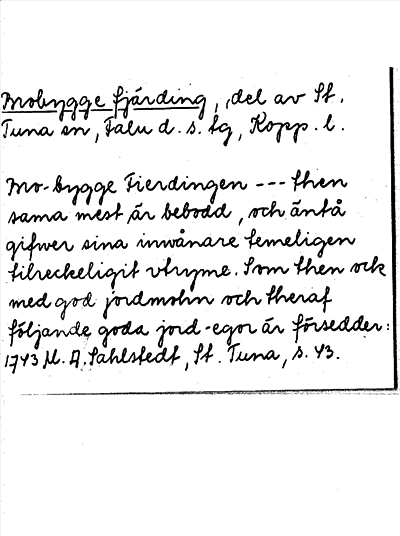 Mobygge fjärding, del av St.
Tuna sn, Falu d. s. tg, Kopp. l.
Mo-bygge Fierdingen --- then
sama mest är bebodd, och ändå
gifwer sina inwånare temeligen
tilreckeligit vtryme. Som then ock
med god jordmohn och theraf
följande goda jord-egor är försedder:
1743 M. A. Sahlstedt, St. Tuna, s. 43.